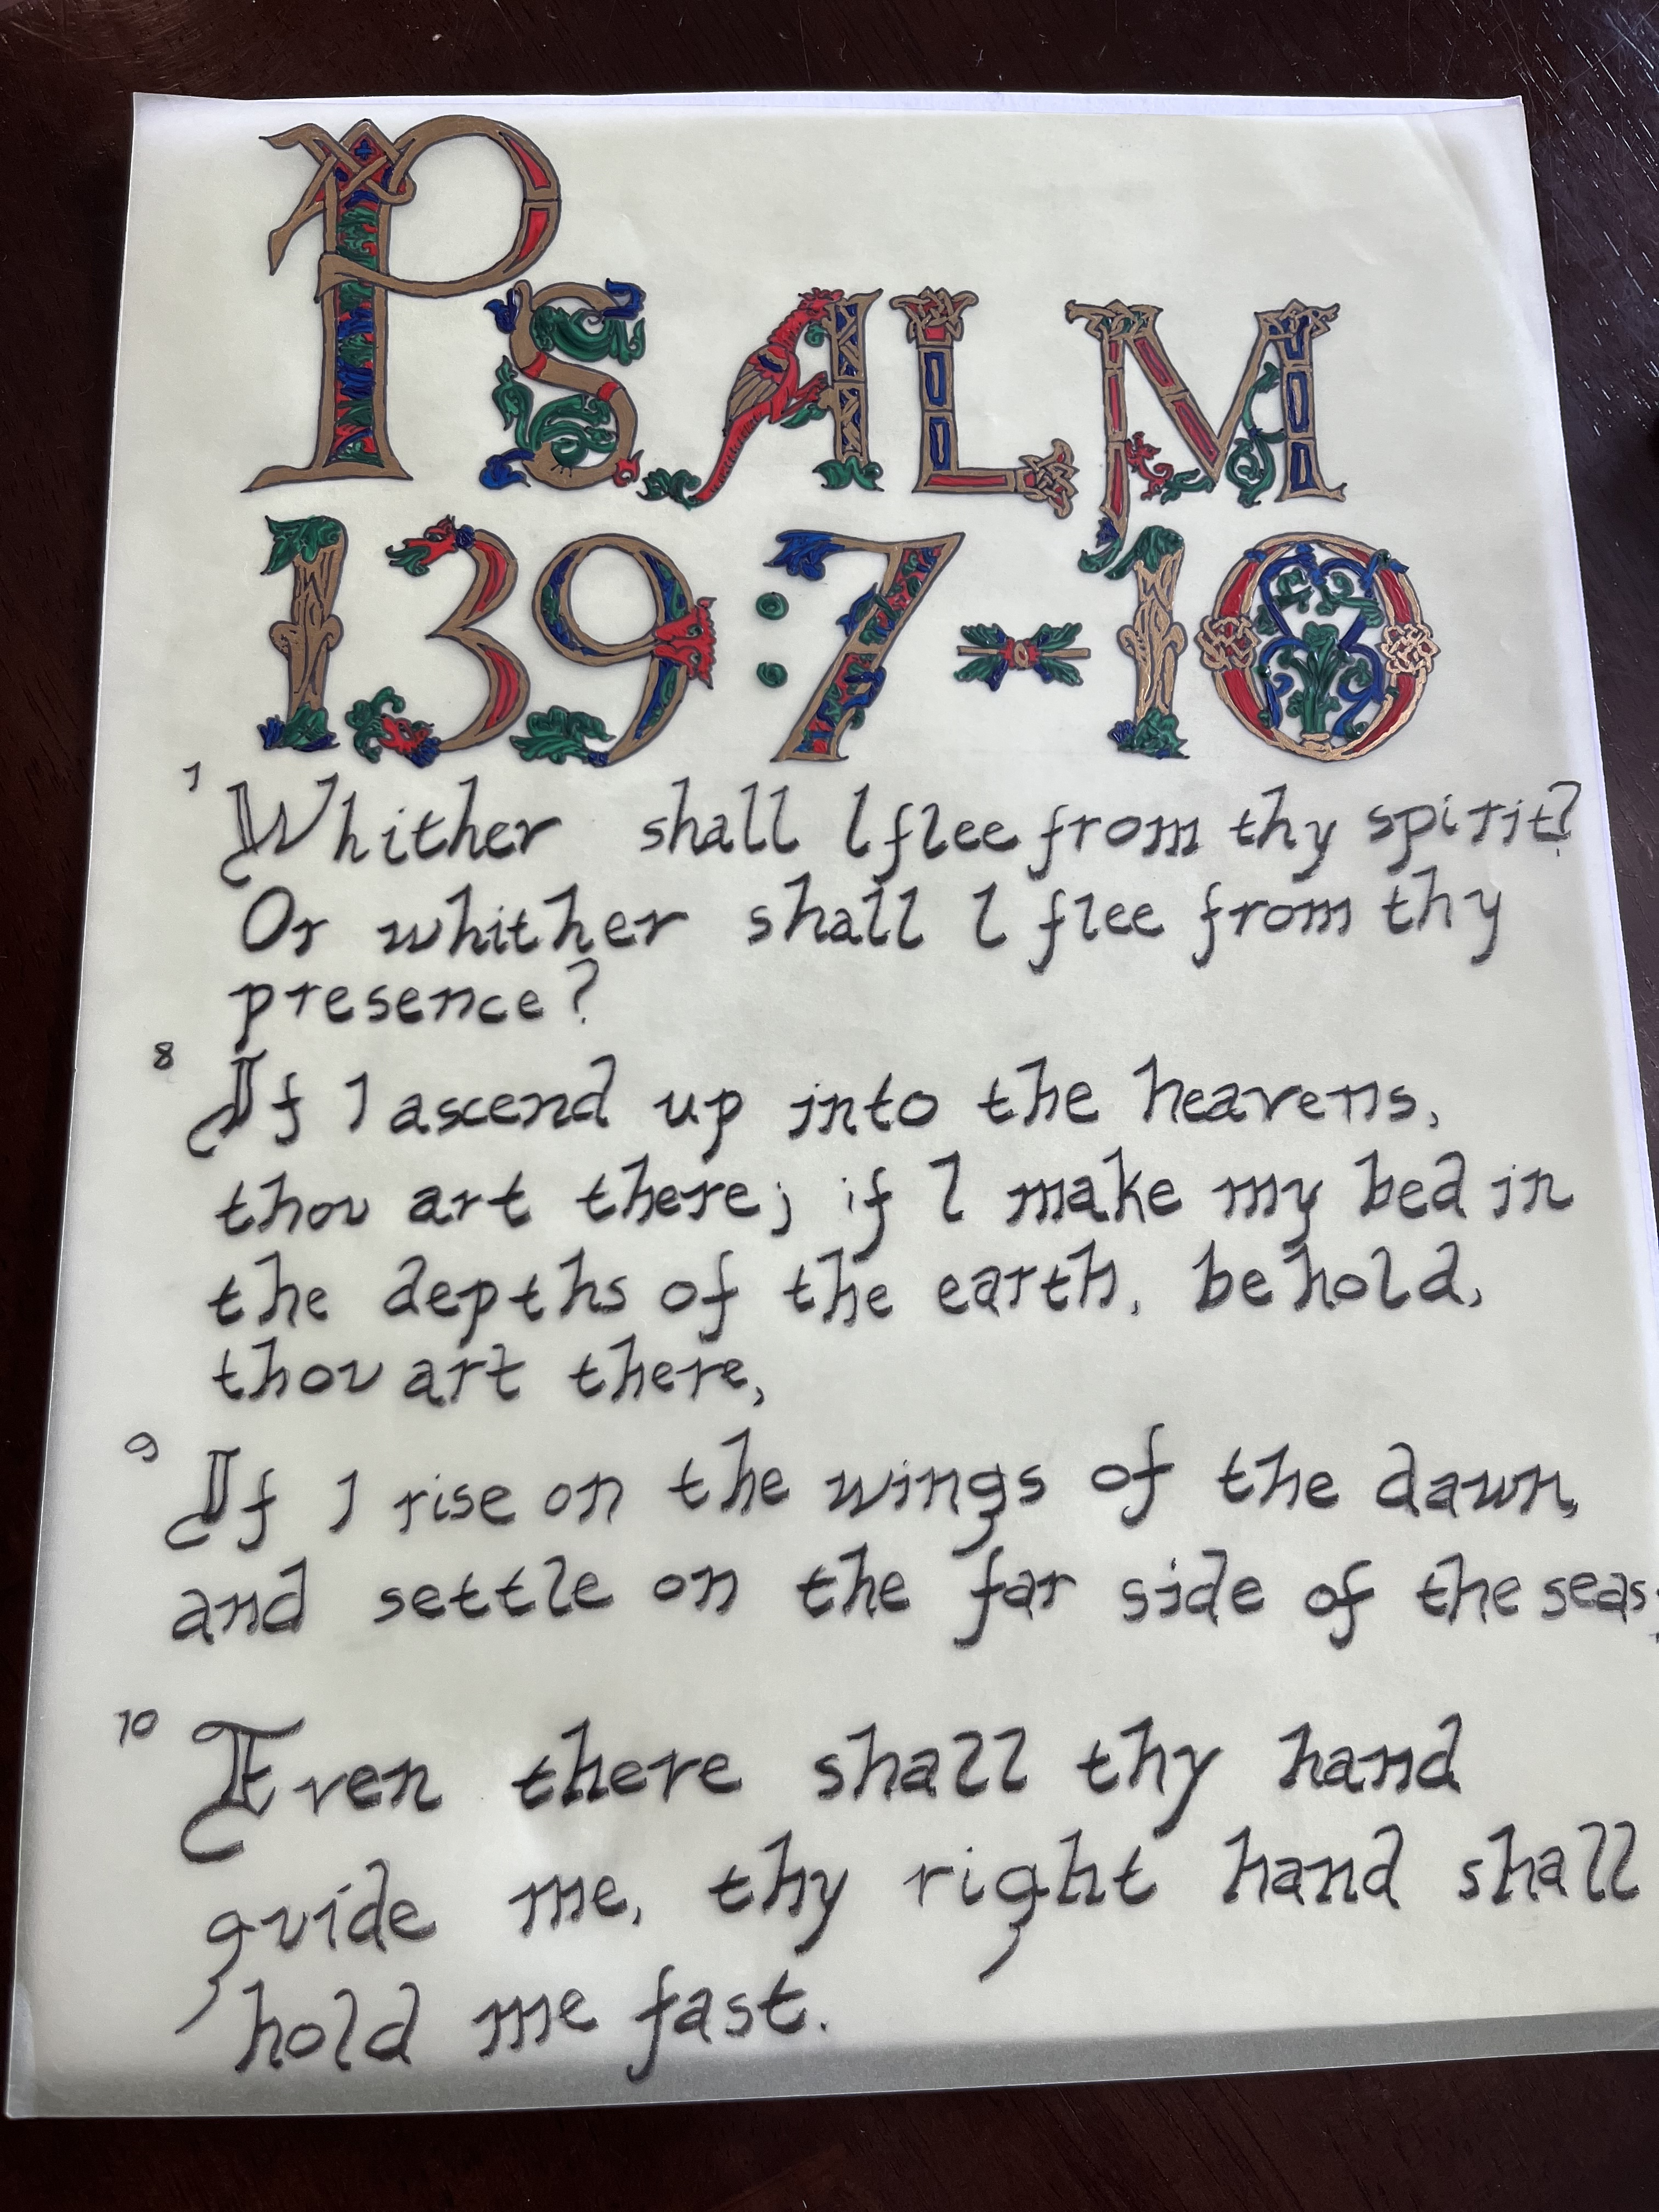 PSALM
139:7-10
7 Whither shall I flee from thy spirit?
Or whither shall I flee from thy
presence?
8 If I ascend up into the heavens,
thou art there; if I make my bed in
the depths of the earth, behold,
thou art there,
9 If I rise on the wings of the dawn,
and settle on the far side of the seas;
10 Even there shall thy hand
guide me, thy right hand shall
hold me fast.